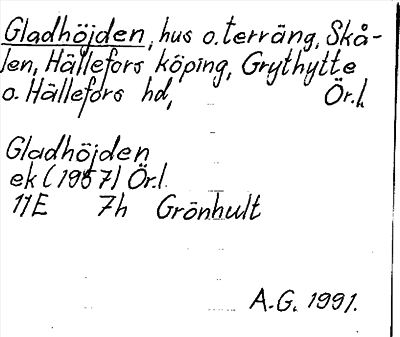 Gladhöjden, hus o. terräng, Skå-
len, Hällefors köping, Grythytte
o. Hällefors hd, Ör.l.
Gladhöjden
ek (1957) Ör.l.
11E 7h Grönhult
A.G. 1991.